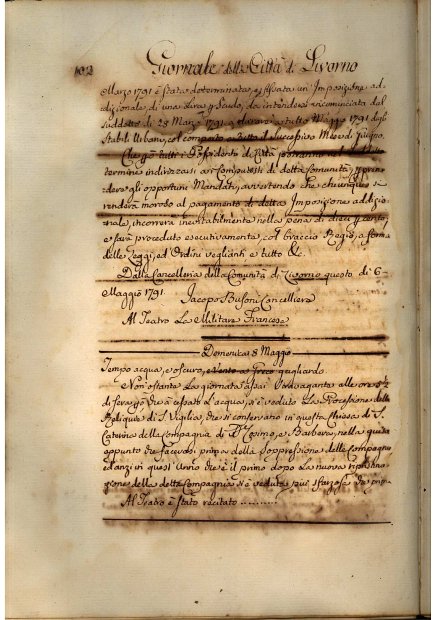 102 Giornale della Città di Livorno
Marzo 1791 è stata determinata, e fissata un' Imposizione ad-
dizionale, di una Lira p Scudo, da intendersi ricominciata dal
suddetto dì 28 Marzo 1791, e durare a tutto Maggio 1791 degli
Stabili Urbani, col comporto a tutto il successivo Mese di Giugno.
Che p tutti i Possidenti di Città potranno nel
termine indirizzarsi ai Computisti di detta Comunità p pren-
dere gli opportuni Mandati, avvertendo che chiunque si
renderà moroso al pagamento di detta Imposizione addizio-
nale, incorrerà inevitabilmente nella pena di dieci p cento,
e sarà proceduto esecutivamente, col braccio Regio, a forma
delle Leggi, ed Ordini veglianti e tutto &c.
Dalla Cancelleria della Comunità di Livorno questo dì 6
Maggio 1791.
Jacopo Busoni Cancelliere
Al Teatro Le Militare Francese
Domenica 8 Maggio
Tempo acqua, e oscuro, Vento a Greco gagliardo
Non ostante La giornata assai stravagante alle ore
di sera, p che è cessata L'acqua, si è veduto La Processione delle
Reliquie di S. Vigilia, che si conservano in questa Chiesa di S.
Caterina della Compagnia di Zosimo, e Barbera, nella guisa
appunto che facevasi prima della Soppressione delle Compagnie
ed anzi in quest' Anno che è il primo dopo La nuova ripristina-
zione della detta Compagnia si è veduta più sfarzosa di prima
Al Teatro è stato recitato ..........